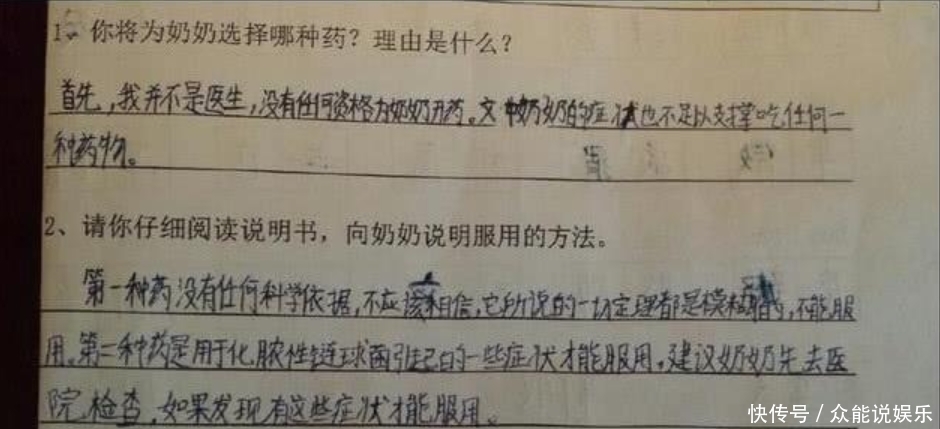 1、你将为奶奶选择哪种药？理由是什么？
首先,我并不是医生,没有任何资格为奶奶开药。文中奶奶的症状也不足以支撑吃任何一
种药物。
2、请你仔细阅读说明书，向奶奶说明服用的方法。
第一种药没有任何科学依据,不应该相信,它所说的一切定理都是模糊的,不能服
用。第二种药是用于化脓性链球菌引起的一些症状才能服用,建议奶奶先去医
院检查,如果发现有这些症状才能服用。
快传号／众能说娱乐